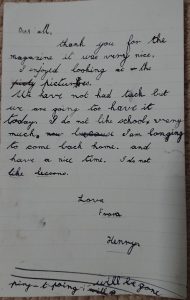 Dear all,
thank you for the
magazine it was very nice.
I enjoyed looking at the
pictures.
We have not had tack but
we are going too have it
today. I do not like school very
much, now because I am longing
to come back home. and
have a nice time. I do not
like
Love
from
Henry
will be gone
ping-pong